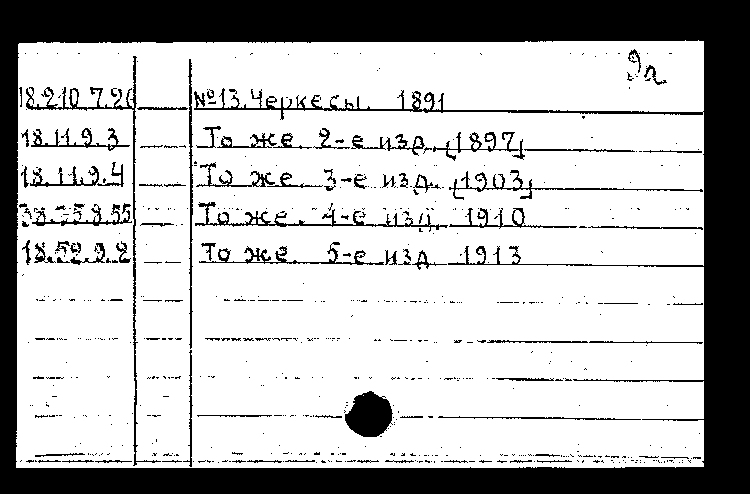 9а
18.210.7.20 №13. Черкесы. 1891
18.11.9.3 То же. 2-е изд. [1897]
18.11.9.4 То же. 3-е изд. [1903]
То же. 4-е изд. 1910
18.52.9.2 То же. 5-е изд. 1913